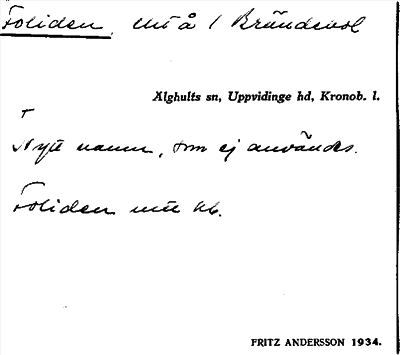 Foliden, litt å / Brändebol
Älghults sn, Uppvidinge hd, Kronob. l.
Nytt namn, som ej användes.
Foliden
FRITZ ANDERSSON 1934.